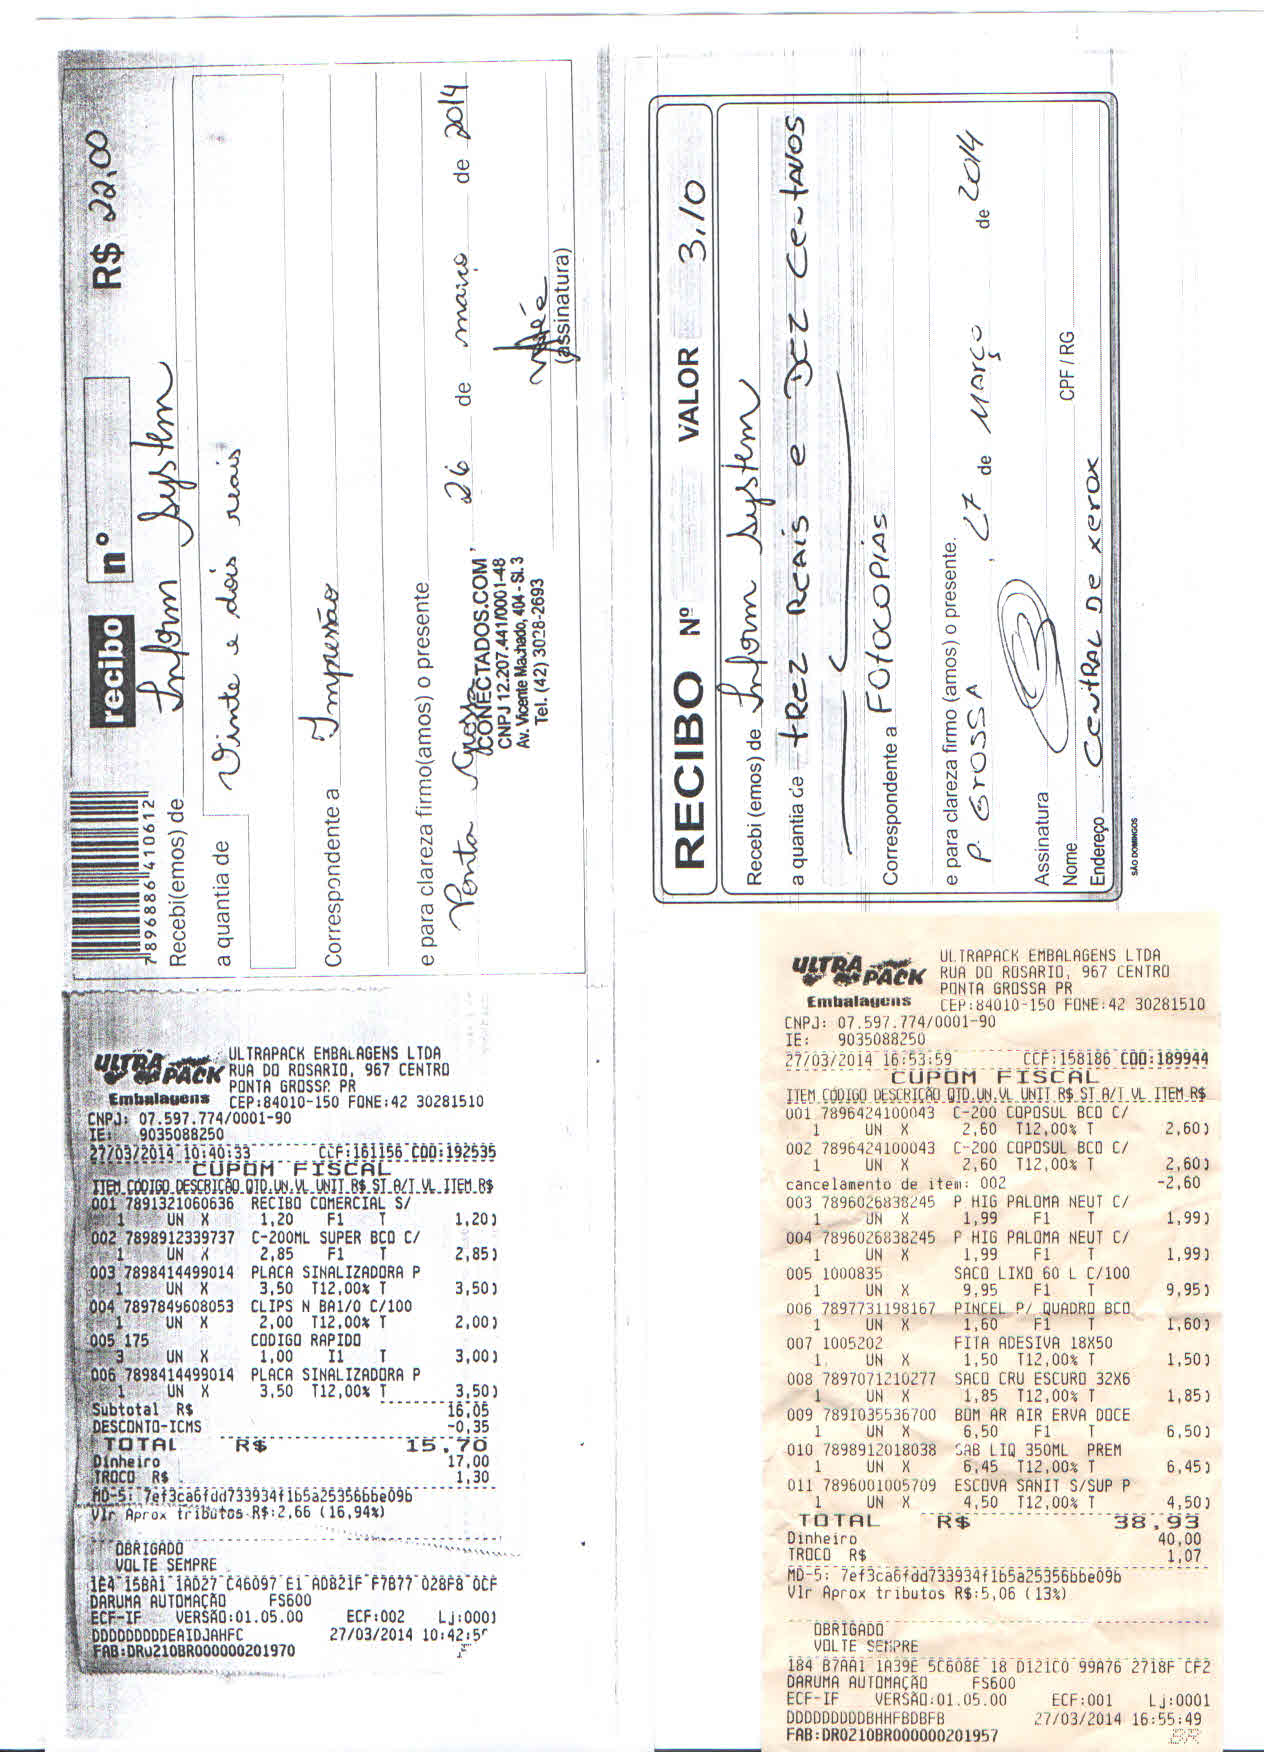 recibo nº R$ 22,00
7896886410612
Recebi(emos) de Inform System
a quantia de Vinte e dois reais
Correspondente a Impressão
e para clareza firmo(amos) o presente
Ponta Grossa, 26 de março de 2014
CONECTADOS.COM
CNPJ 12.207.441/0001-48
Av. Vicente Machado, 404 - Sl. 3
Tel. (42) 3028-2693
(assinatura)
RECIBO Nº VALOR 3,10
Recebi (emos) de Inform System
a quantia de trez Reais e DEZ CentAVOS
Correspondente a FOtOCOPIAS
e para clareza firmo (amos) o presente.
P. GrOSSA, 27 de MARÇO de 2014
Assinatura
Nome CPF / RG
Endereço CentRAL De Xerox
SÃO DOMINGOS
ULTRA PACK
Embalagens
ULTRAPACK EMBALAGENS LTDA
RUA DO ROSARIO, 967 CENTRO
PONTA GROSSA PR
CEP:84010-150 FONE:42 30281510
CNPJ: 07.597.774/0001-90
IE: 9035088250
27/03/2014 10:40:33 CCF:161156 COO:192535
CUPOM FISCAL
ITEM CÓDIGO DESCRIÇÃO QTD.UN.VL UNIT R$ ST A/T VL ITEM R$
001 7891321060636 RECIBO COMERCIAL S/
1 UN X 1,20 F1 T 1,20
002 7898912339737 C-200ML SUPER BCO C/
1 UN X 2,85 F1 T 2,85
003 7898414499014 PLACA SINALIZADORA P
1 UN X 3,50 T12,00% T 3,50
004 7897849608053 CLIPS N BA1/0 C/100
1 UN X 2,00 T12,00% T 2,00
005 175 CODIGO RAPIDO
3 UN X 1,00 I1 T 3,00
006 7898414499014 PLACA SINALIZADORA P
1 UN X 3,50 T12,00% T 3,50
Subtotal R$ 16,05
DESCONTO-ICMS -0,35
TOTAL R$ 15,70
Dinheiro 17,00
TROCO R$ 1,30
MD-5: 7ef3ca6fdd733934f1b5a25356bbe09b
Vlr Aprox tributos R$:2,66 (16,94%)
OBRIGADO
VOLTE SEMPRE
1E4 15BA1 1AD27 C46097 E1 AD821F F7B77 028F8 0CF
DARUMA AUTOMAÇÃO FS600
ECF-IF VERSÃO:01.05.00 ECF:002 Lj:0001
DDDDDDDDDEAIDJAHFC 27/03/2014 10:42:5
FAB:DR0210BR000000201970
ULTRA PACK
Embalagens
ULTRAPACK EMBALAGENS LTDA
RUA DO ROSARIO, 967 CENTRO
PONTA GROSSA PR
CEP:84010-150 FONE:42 30281510
CNPJ: 07.597.774/0001-90
IE: 9035088250
27/03/2014 16:53:59 CCF:158186 COO:189944
CUPOM FISCAL
ITEM CÓDIGO DESCRIÇÃO QTD.UN.VL UNIT R$ ST A/T VL ITEM R$
001 7896424100043 C-200 COPOSUL BCO C/
1 UN X 2,60 T12,00% T 2,60
002 7896424100043 C-200 COPOSUL BCO C/
1 UN X 2,60 T12,00% T 2,60
cancelamento de item: 002 -2,60
003 7896026838245 P HIG PALOMA NEUT C/
1 UN X 1,99 F1 T 1,99
004 7896026838245 P HIG PALOMA NEUT C/
1 UN X 1,99 F1 T 1,99
005 1000835 SACO LIXO 60 L C/100
1 UN X 9,95 F1 T 9,95
006 7897731198167 PINCEL P/ QUADRO BCO
1 UN X 1,60 F1 T 1,60
007 1005202 FITA ADESIVA 18X50
1 UN X 1,50 T12,00% T 1,50
008 7897071210277 SACO CRU ESCURO 32X6
1 UN X 1,85 T12,00% T 1,85
009 7891035536700 BOM AR AIR ERVA DOCE
1 UN X 6,50 F1 T 6,50
010 7898912018038 SAB LIQ 350ML PREM
1 UN X 6,45 T12,00% T 6,45
011 7896001005709 ESCOVA SANIT S/SUP P
1 UN X 4,50 T12,00% T 4,50
TOTAL R$ 38,93
Dinheiro 40,00
TROCO R$ 1,07
MD-5: 7ef3ca6fdd733934f1b5a25356bbe09b
Vlr Aprox tributos R$:5,06 (13%)
OBRIGADO
VOLTE SEMPRE
184 B7AA1 1A39E 5C608E 18 D121C0 99A76 2718F CF2
DARUMA AUTOMAÇÃO FS600
ECF-IF VERSÃO:01.05.00 ECF:001 Lj:0001
DDDDDDDDDBHHFBDBFB 27/03/2014 16:55:49
FAB:DR0210BR000000201957
BR